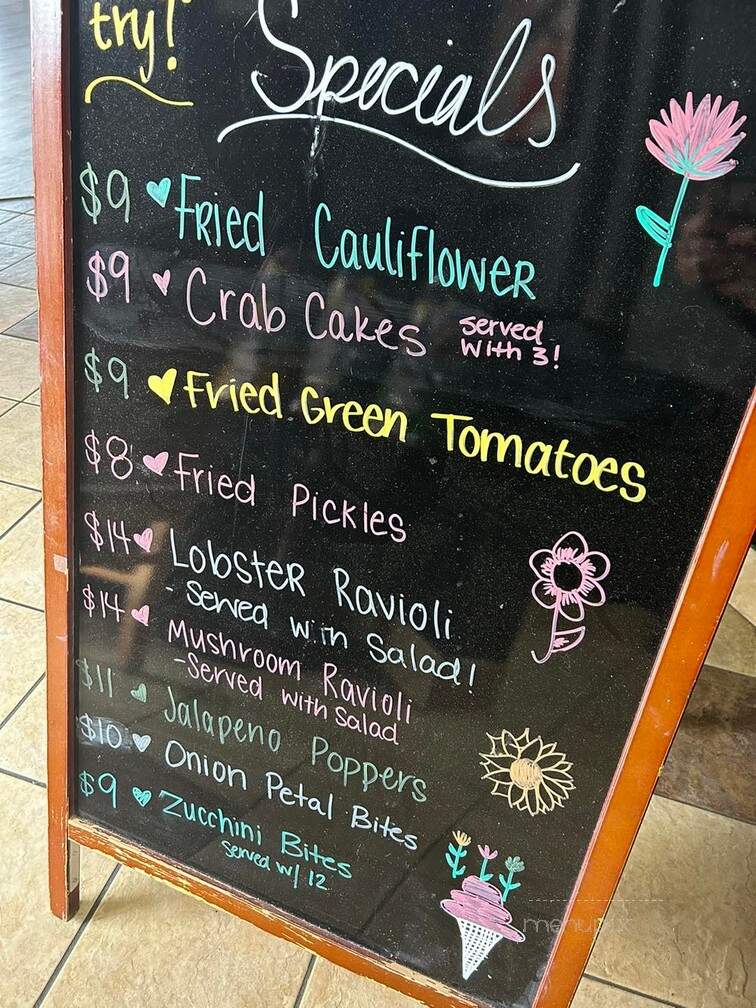 try!
Specials
$9 Fried Cauliflower
$9 Crab Cakes served with 3!
$9 Fried Green Tomatoes
$8 Fried Pickles
$14 Lobster Ravioli
- Served with Salad!
$14 Mushroom Ravioli
- Served with Salad
$11 Jalapeno Poppers
$10 Onion Petal Bites
$9 Zucchini Bites
served w/ 12